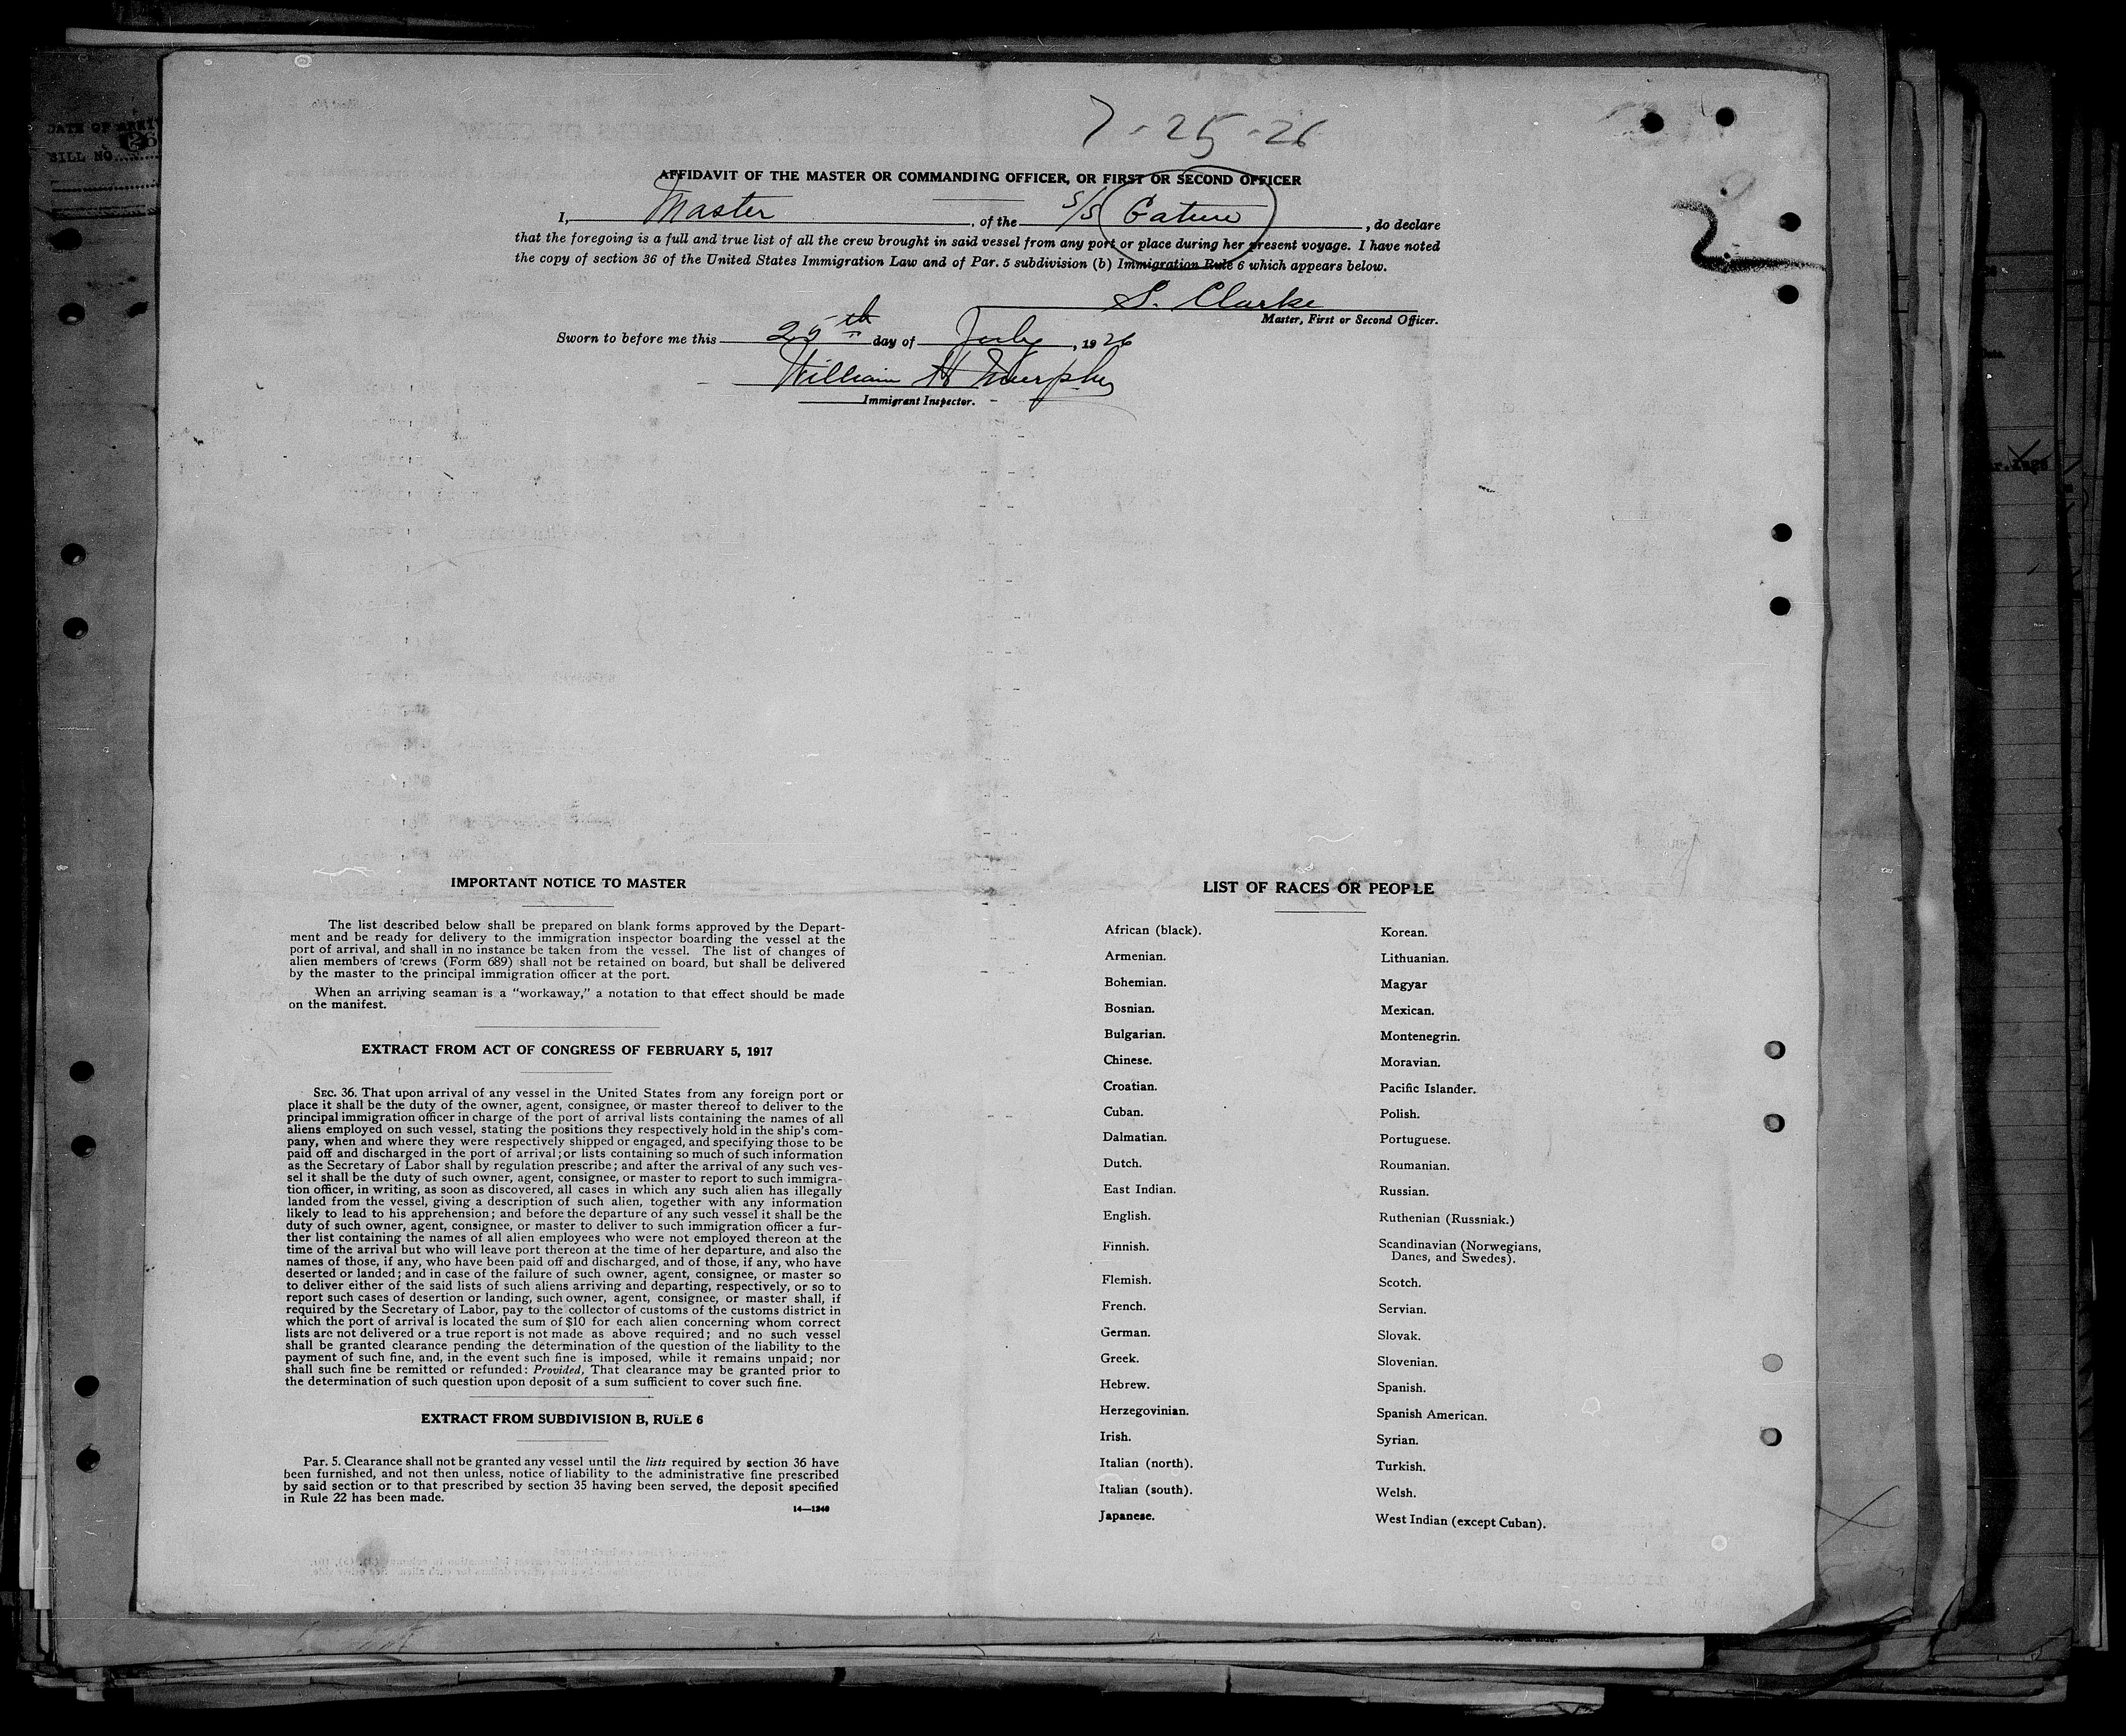 DATE OF
BILL NO.
26
7-25-26
AFFIDAVIT OF THE MASTER OR COMMANDING OFFICER, OR FIRST OR SECOND OFFICER
I, Master, of the S/S Gatun, do declare
that the foregoing is a full and true list of all the crew brought in said vessel from any port or place during her present voyage. I have noted
the copy of section 36 of the United States Immigration Law and of Par. 5 subdivision (b) Immigration Rule 6 which appears below.
2
S. Clarke
Master, First or Second Officer.
Sworn to before me this 25th day of July, 1926
William H Murphy
Immigrant Inspector.
IMPORTANT NOTICE TO MASTER
The list described below shall be prepared on blank forms approved by the Depart-
ment and be ready for delivery to the immigration inspector boarding the vessel at the
port of arrival, and shall in no instance be taken from the vessel. The list of changes of
alien members of crews (Form 689) shall not be retained on board, but shall be delivered
by the master to the principal immigration officer at the port.
When an arriving seaman is a "workaway," a notation to that effect should be made
on the manifest.
EXTRACT FROM ACT OF CONGRESS OF FEBRUARY 5, 1917
SEC. 36. That upon arrival of any vessel in the United States from any foreign port or
place it shall be the duty of the owner, agent, consignee, or master thereof to deliver to the
principal immigration officer in charge of the port of arrival lists containing the names of all
aliens employed on such vessel, stating the positions they respectively hold in the ship's com-
pany, when and where they were respectively shipped or engaged, and specifying those to be
paid off and discharged in the port of arrival; or lists containing so much of such information
as the Secretary of Labor shall by regulation prescribe; and after the arrival of any such ves-
sel it shall be the duty of such owner, agent, consignee, or master to report to such immigra-
tion officer, in writing, as soon as discovered, all cases in which any such alien has illegally
landed from the vessel, giving a description of such alien, together with any information
likely to lead to his apprehension; and before the departure of any such vessel it shall be the
duty of such owner, agent, consignee, or master to deliver to such immigration officer a fur-
ther list containing the names of all alien employees who were not employed thereon at the
time of the arrival but who will leave port thereon at the time of her departure, and also the
names of those, if any, who have been paid off and discharged, and of those, if any, who have
deserted or landed; and in case of the failure of such owner, agent, consignee, or master so
to deliver either of the said lists of such aliens arriving and departing, respectively, or so to
report such cases of desertion or landing, such owner, agent, consignee, or master shall, if
required by the Secretary of Labor, pay to the collector of customs of the customs district in
which the port of arrival is located the sum of $10 for each alien concerning whom correct
lists are not delivered or a true report is not made as above required; and no such vessel
shall be granted clearance pending the determination of the question of the liability to the
payment of such fine, and, in the event such fine is imposed, while it remains unpaid; nor
shall such fine be remitted or refunded: Provided, That clearance may be granted prior to
the determination of such question upon deposit of a sum sufficient to cover such fine.
EXTRACT FROM SUBDIVISION B, RULE 6
Par. 5. Clearance shall not be granted any vessel until the lists required by section 36 have
been furnished, and not then unless, notice of liability to the administrative fine prescribed
by said section or to that prescribed by section 35 having been served, the deposit specified
in Rule 22 has been made.
14—1240
LIST OF RACES OR PEOPLE
African (black).
Armenian.
Bohemian.
Bosnian.
Bulgarian.
Chinese.
Croatian.
Cuban.
Dalmatian.
Dutch.
East Indian.
English.
Finnish.
Flemish.
French.
German.
Greek.
Hebrew.
Herzegovinian.
Irish.
Italian (north).
Italian (south).
Japanese.
Korean.
Lithuanian.
Magyar
Mexican.
Montenegrin.
Moravian.
Pacific Islander.
Polish.
Portuguese.
Roumanian.
Russian.
Ruthenian (Russniak.)
Scandinavian (Norwegians,
Danes, and Swedes).
Scotch.
Servian.
Slovak.
Slovenian.
Spanish.
Spanish American.
Syrian.
Turkish.
Welsh.
West Indian (except Cuban).